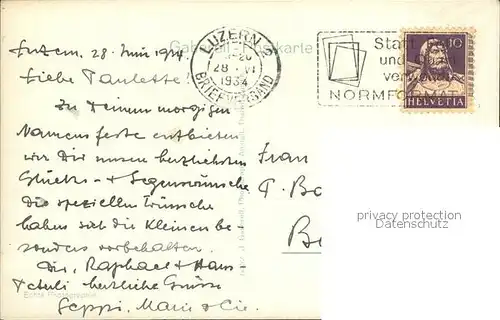 Luzern, 28 Juni 1934
Liebe Paulette!
Zu Deinem morgigen
Namensfeste entbieten
wir Dir unsere herzlichsten
Glücks- & Segenswünsche
Die speziellen Wünsche
haben sich die Kleinen be-
sonders vorbehalten.
Dir, Raphael & Hans-
herzliche Grüsse
Seppi, Marie & Cie.
Echte Photographie
LUZERN
28. VI
1934
BRIEFVERSAND
Statt
und
NORMFORMAT
10
HELVETIA
Frau
Be
privacy protection
Datenschutz